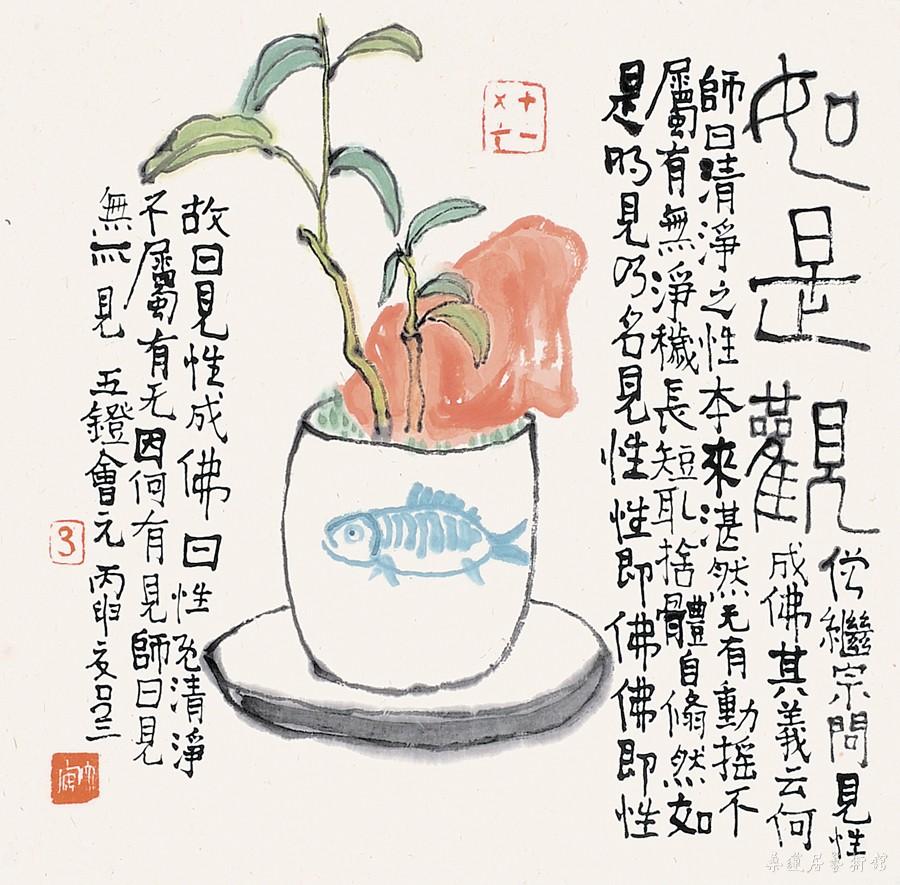 如是觀
僧繼宗問見性
成佛其義云何
師曰清淨之性本來湛然无有動摇不
屬有無淨穢長短取捨體自翛然如
是明見乃名見性性即佛佛即性
故曰見性成佛曰性既清淨
不屬有无因何有見師曰見
無所見 五鐙會元 丙申
3
桑蓮居藝術館